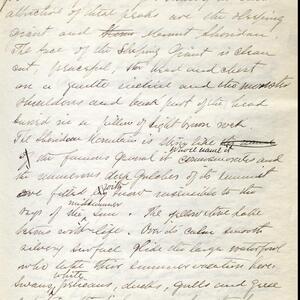 attraction of
peaks are the Sleeping
Giant and Mount Sheridan
The face of the Sleeping Giant is clear
cut, peaceful, the head and chest
on a gentle incline and the
shoulders and back part of the head
buried in a pillow of light brown rock
Mountain is very like
the famous general it commemorates and
the numerous deep gulches of its summit
are filled with snow invincible to the
midsummer
rays of the sun. The lake
with life. On its calm smooth
silvery surface glide the large waterfowl
who take their summer vacation here
Swans, white pelicans, ducks, gulls and geese